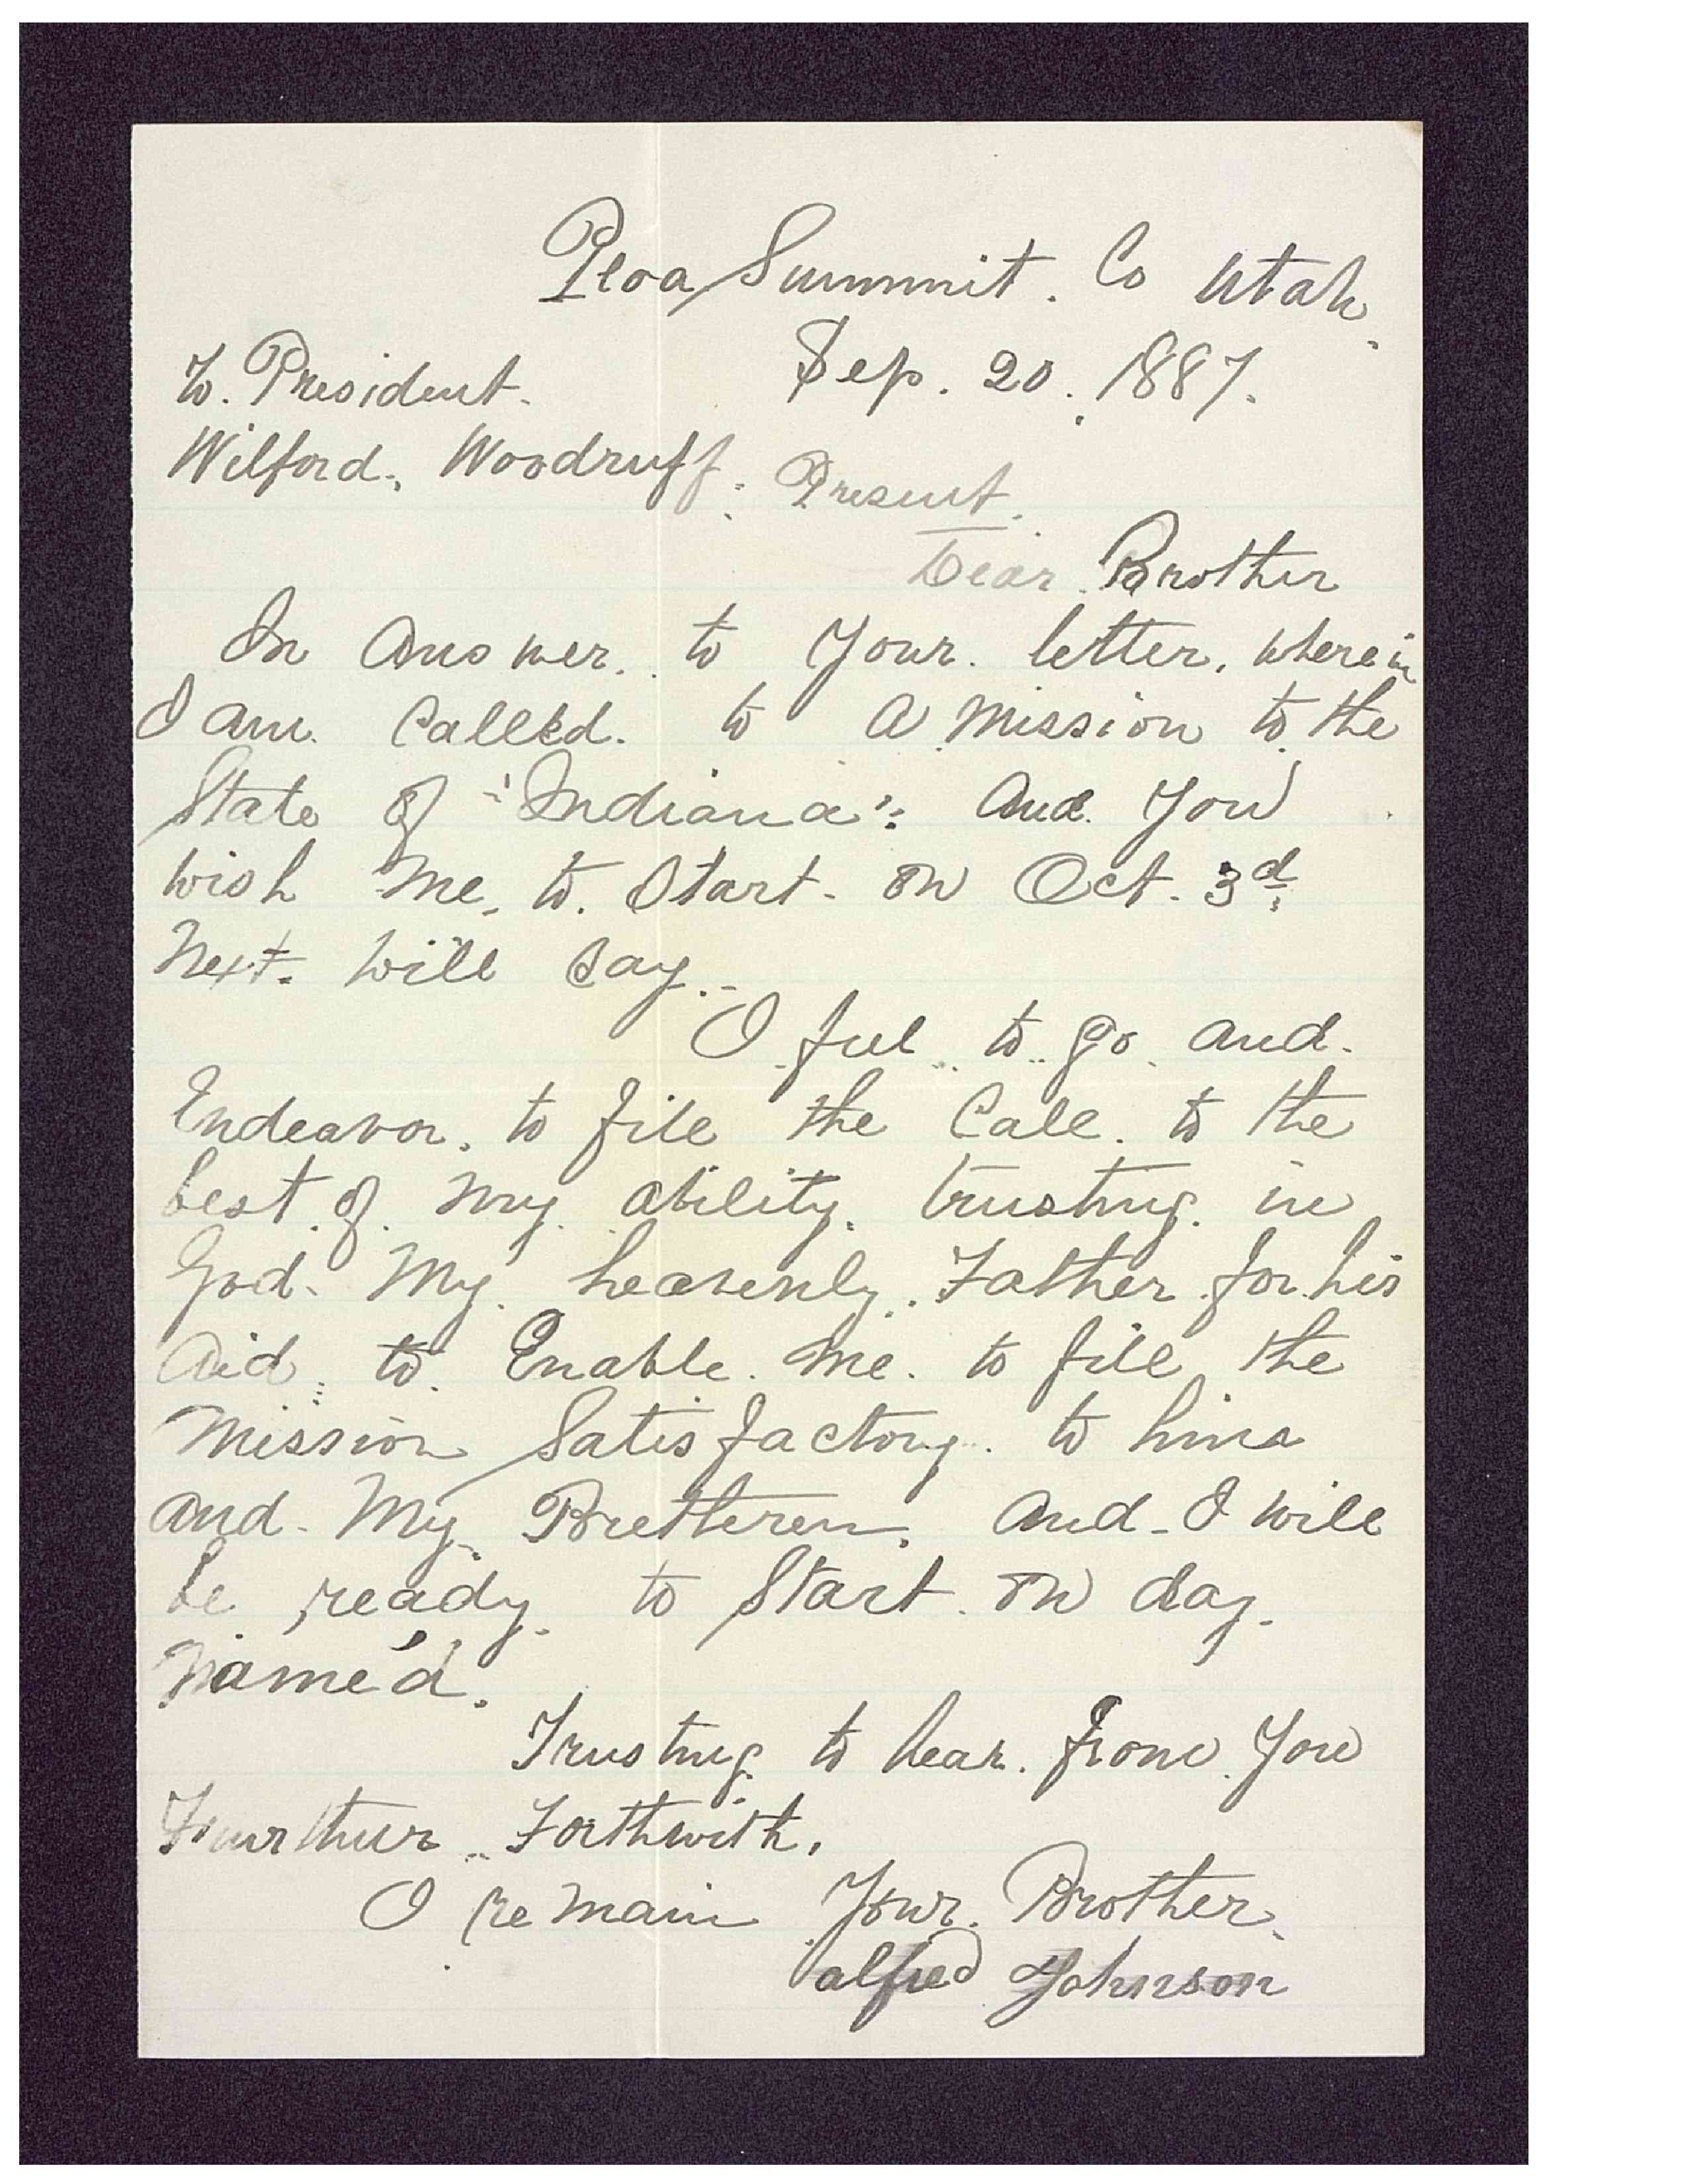 Peoa Summit. Co Utah.
Sep. 20. 1887.
To. President.
Wilford. Woodruff. Present.
Dear. Brother
In Answer. to Your. letter. wherein
I am. Called. to A Mission to the
State of "Indiana". And You
wish Me, to. Start. on Oct. 3d
Next. will say..
I feel to go and.
Endeavor. to fill the Call. to the
best. of. my. ability. trusting. in
God. My. heavenly. Father. for. his
Aid. to. Enable. me. to fill the
Mission Satisfactory. to him
and. My. Bretheren. and. I will
be ready. to Start. on day.
Name'd.
Trusting. to hear. from. You
Furthur Forthwith.
I remain Your. Brother.
alfred Johnson